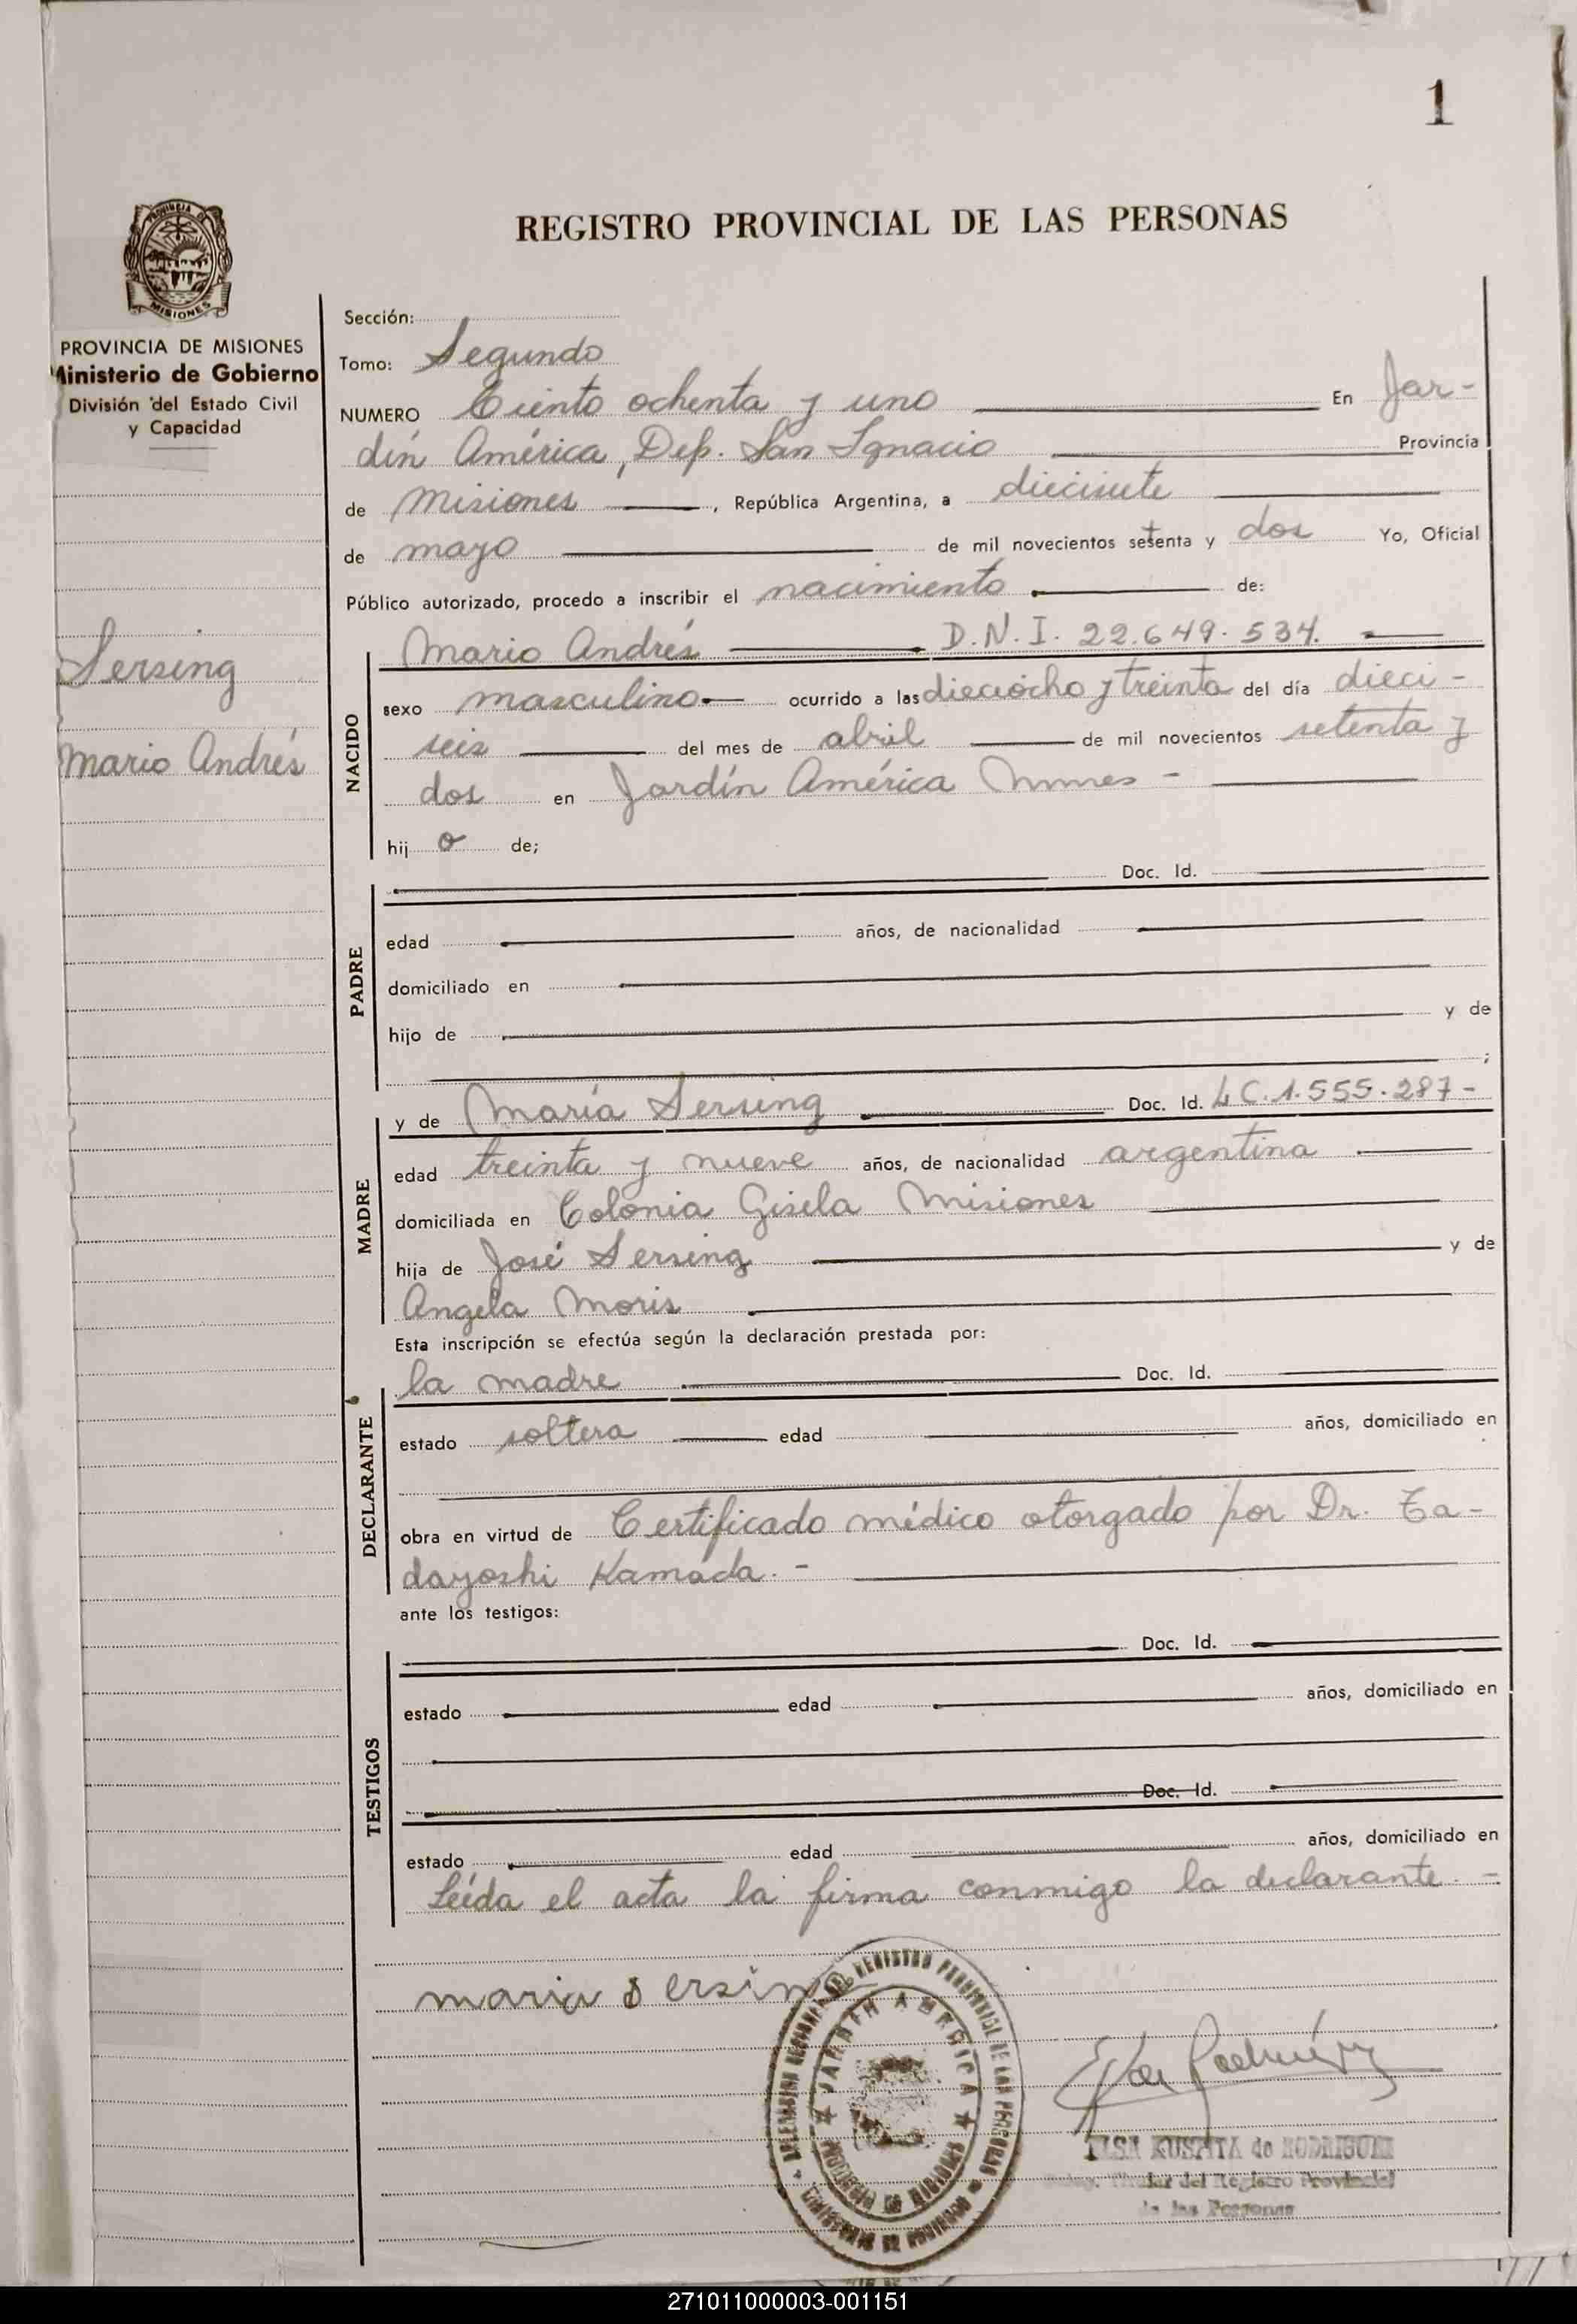 1
REGISTRO PROVINCIAL DE LAS PERSONAS
PROVINCIA DE
MISIONES
PROVINCIA DE MISIONES
Ministerio de Gobierno
División del Estado Civil
y Capacidad
Sersing
Mario Andrés
Sección:
Tomo: Segundo
NUMERO Ciento ochenta y uno En Jar-
dín América, Dep. San Ignacio Provincia
de Misiones, República Argentina, a diecisiete
de mayo de mil novecientos setenta y dos Yo, Oficial
Público autorizado, procedo a inscribir el nacimiento de:
Mario Andrés D.N.I. 22.649.534.
NACIDO
sexo masculino.- ocurrido a las dieciocho y treinta del día dieci-
seis del mes de abril de mil novecientos setenta y
dos en Jardín América -
hij o de;
PADRE
Doc. Id.
edad años, de nacionalidad
domiciliado en
hijo de y de
;
MADRE
y de María Sersing Doc. Id. L.C.1.555.287-
edad treinta y nueve años, de nacionalidad argentina
domiciliada en Colonia Gisela Misiones
hija de José Sersing y de
Angela Moris
Esta inscripción se efectúa según la declaración prestada por:
DECLARANTE
la madre Doc. Id.
estado soltera edad años, domiciliado en
obra en virtud de Certificado médico otorgado por Dr. Ta-
dayoshi Kamada.-
ante los testigos:
TESTIGOS
Doc. Id.
estado edad años, domiciliado en
Doc. Id.
estado edad años, domiciliado en
Leída el acta la firma conmigo la declarante.-
maria sersing
REGISTRO PROVINCIAL DE LAS PERSONAS
JARDIN AMERICA
PROVINCIA DE MISIONES
MINISTERIO DE GOBIERNO
KUSZTA de
Titular del Registro Provincial
de las Personas
271011000003-001151